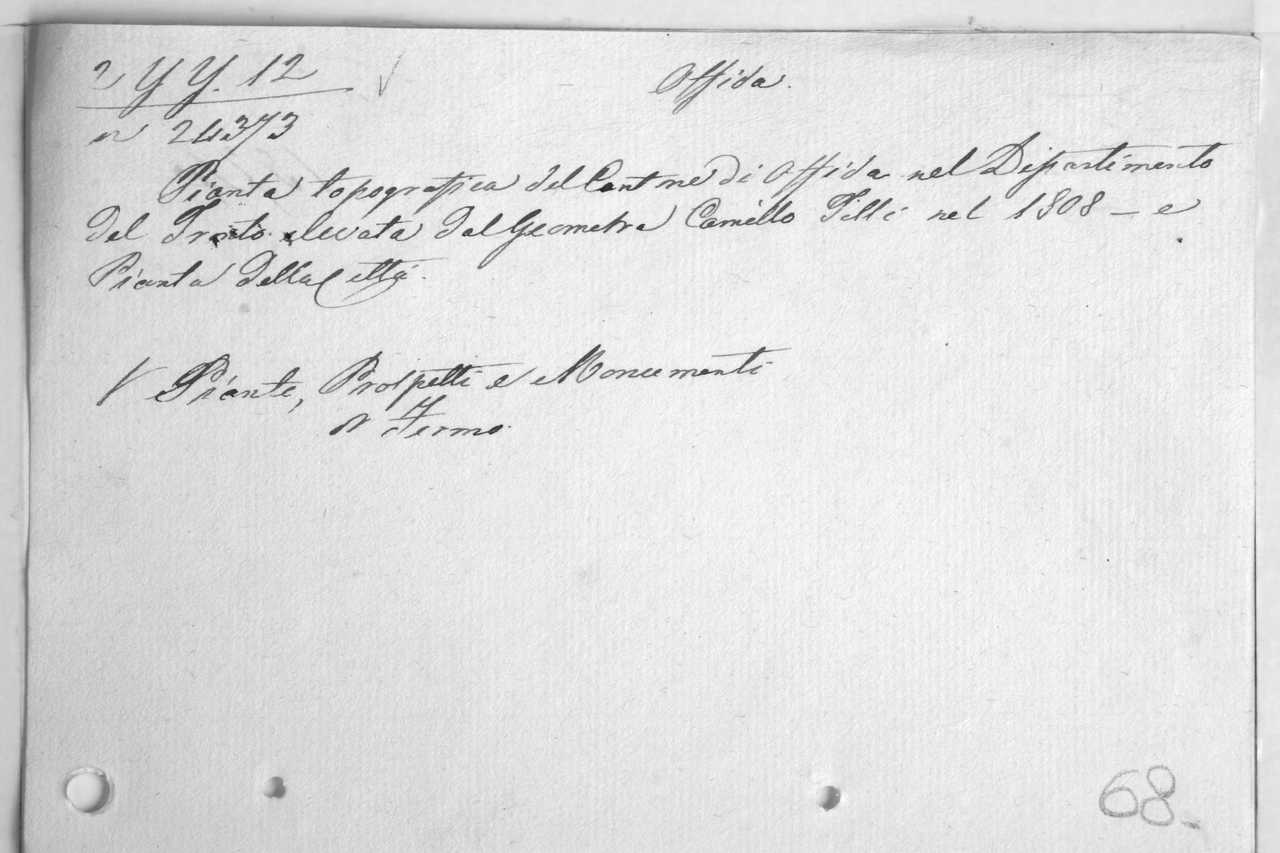 2 YY. 12
Offida.
n 24373
Pianta topografica del Cantne di Offida nel Dipartimento
del Tronto elevata dal Geometra Camillo Tilli nel 1808 – e
Pianta della Città.
V Piante, Prospetti e Monumenti
di Fermo.
68-